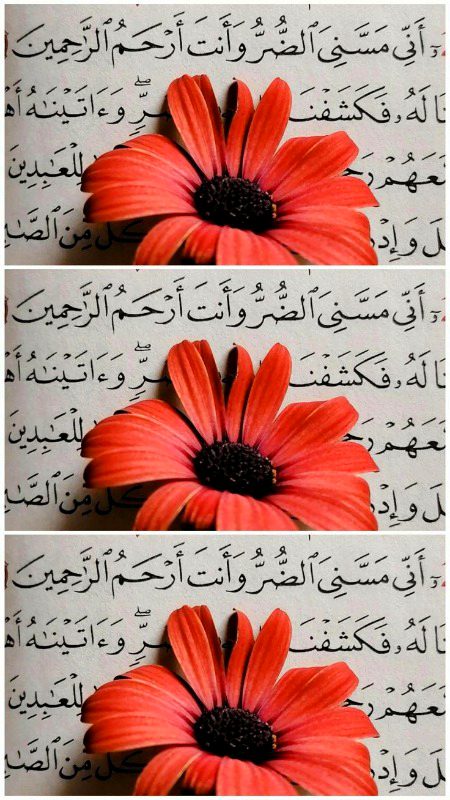 أَنِّي مَسَّنِيَ ٱلضُّرُّ وَأَنتَ أَرْحَمُ ٱلرَّٰحِمِينَ
نَا لَهُۥ فَكَشَفْنَـ ـرٍّۖ وَءَاتَيْنَٰهُ أَهـ
ـعَهُمْ رَحـ لِلْعَٰبِدِينَ
ـلَ وَإِدْر كُلٌّ مِّنَ ٱلصَّٰبـ
أَنِّي مَسَّنِيَ ٱلضُّرُّ وَأَنتَ أَرْحَمُ ٱلرَّٰحِمِينَ
نَا لَهُۥ فَكَشَفْنَـ ـرٍّۖ وَءَاتَيْنَٰهُ أَهـ
ـعَهُمْ رَحـ لِلْعَٰبِدِينَ
ـلَ وَإِدْر كُلٌّ مِّنَ ٱلصَّٰبـ
أَنِّي مَسَّنِيَ ٱلضُّرُّ وَأَنتَ أَرْحَمُ ٱلرَّٰحِمِينَ
نَا لَهُۥ فَكَشَفْنَـ ـرٍّۖ وَءَاتَيْنَٰهُ أَهـ
ـعَهُمْ رَحـ لِلْعَٰبِدِينَ
ـلَ وَإِدْر كُلٌّ مِّنَ ٱلصَّٰبـ